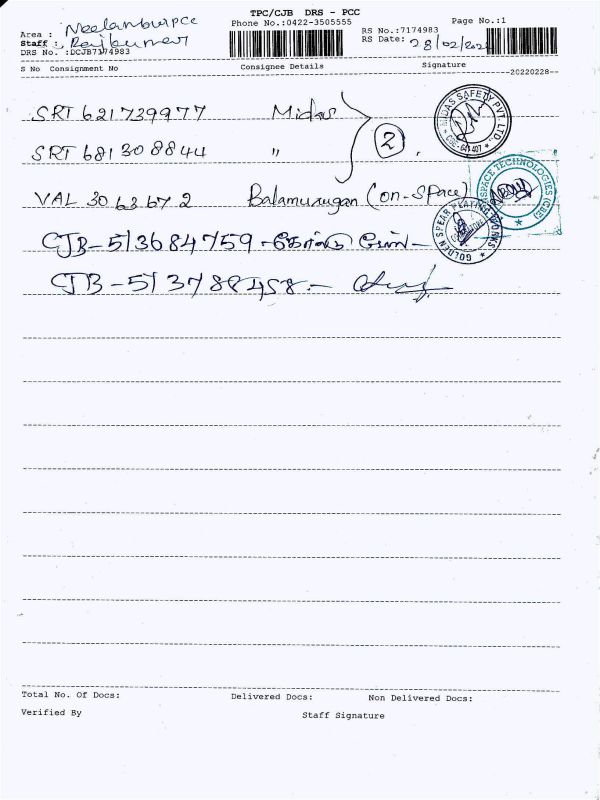 TPC/CJB DRS - PCC
Phone No.:0422-3505555
Page No.:1
Area : NeelamburPCC
Staff : Rajkumar
DRS No. :DCJB7174983
RS No.:7174983
RS Date: 28/02/202
S No Consignment No Consignee Details Signature
--20220228--
SRT 621739977 Midas
SRT 681308844 "
2
MIDAS SAFETY PVT. LTD
VAL 3063672 Balamurugan (on-space)
SPACE TECHNOLOGIES (CBE)
CJB-513684759 -
GOLDEN SPEAR PLATING WORKS
CJB-513788458 -
Total No. Of Docs: Delivered Docs: Non Delivered Docs:
Verified By Staff Signature